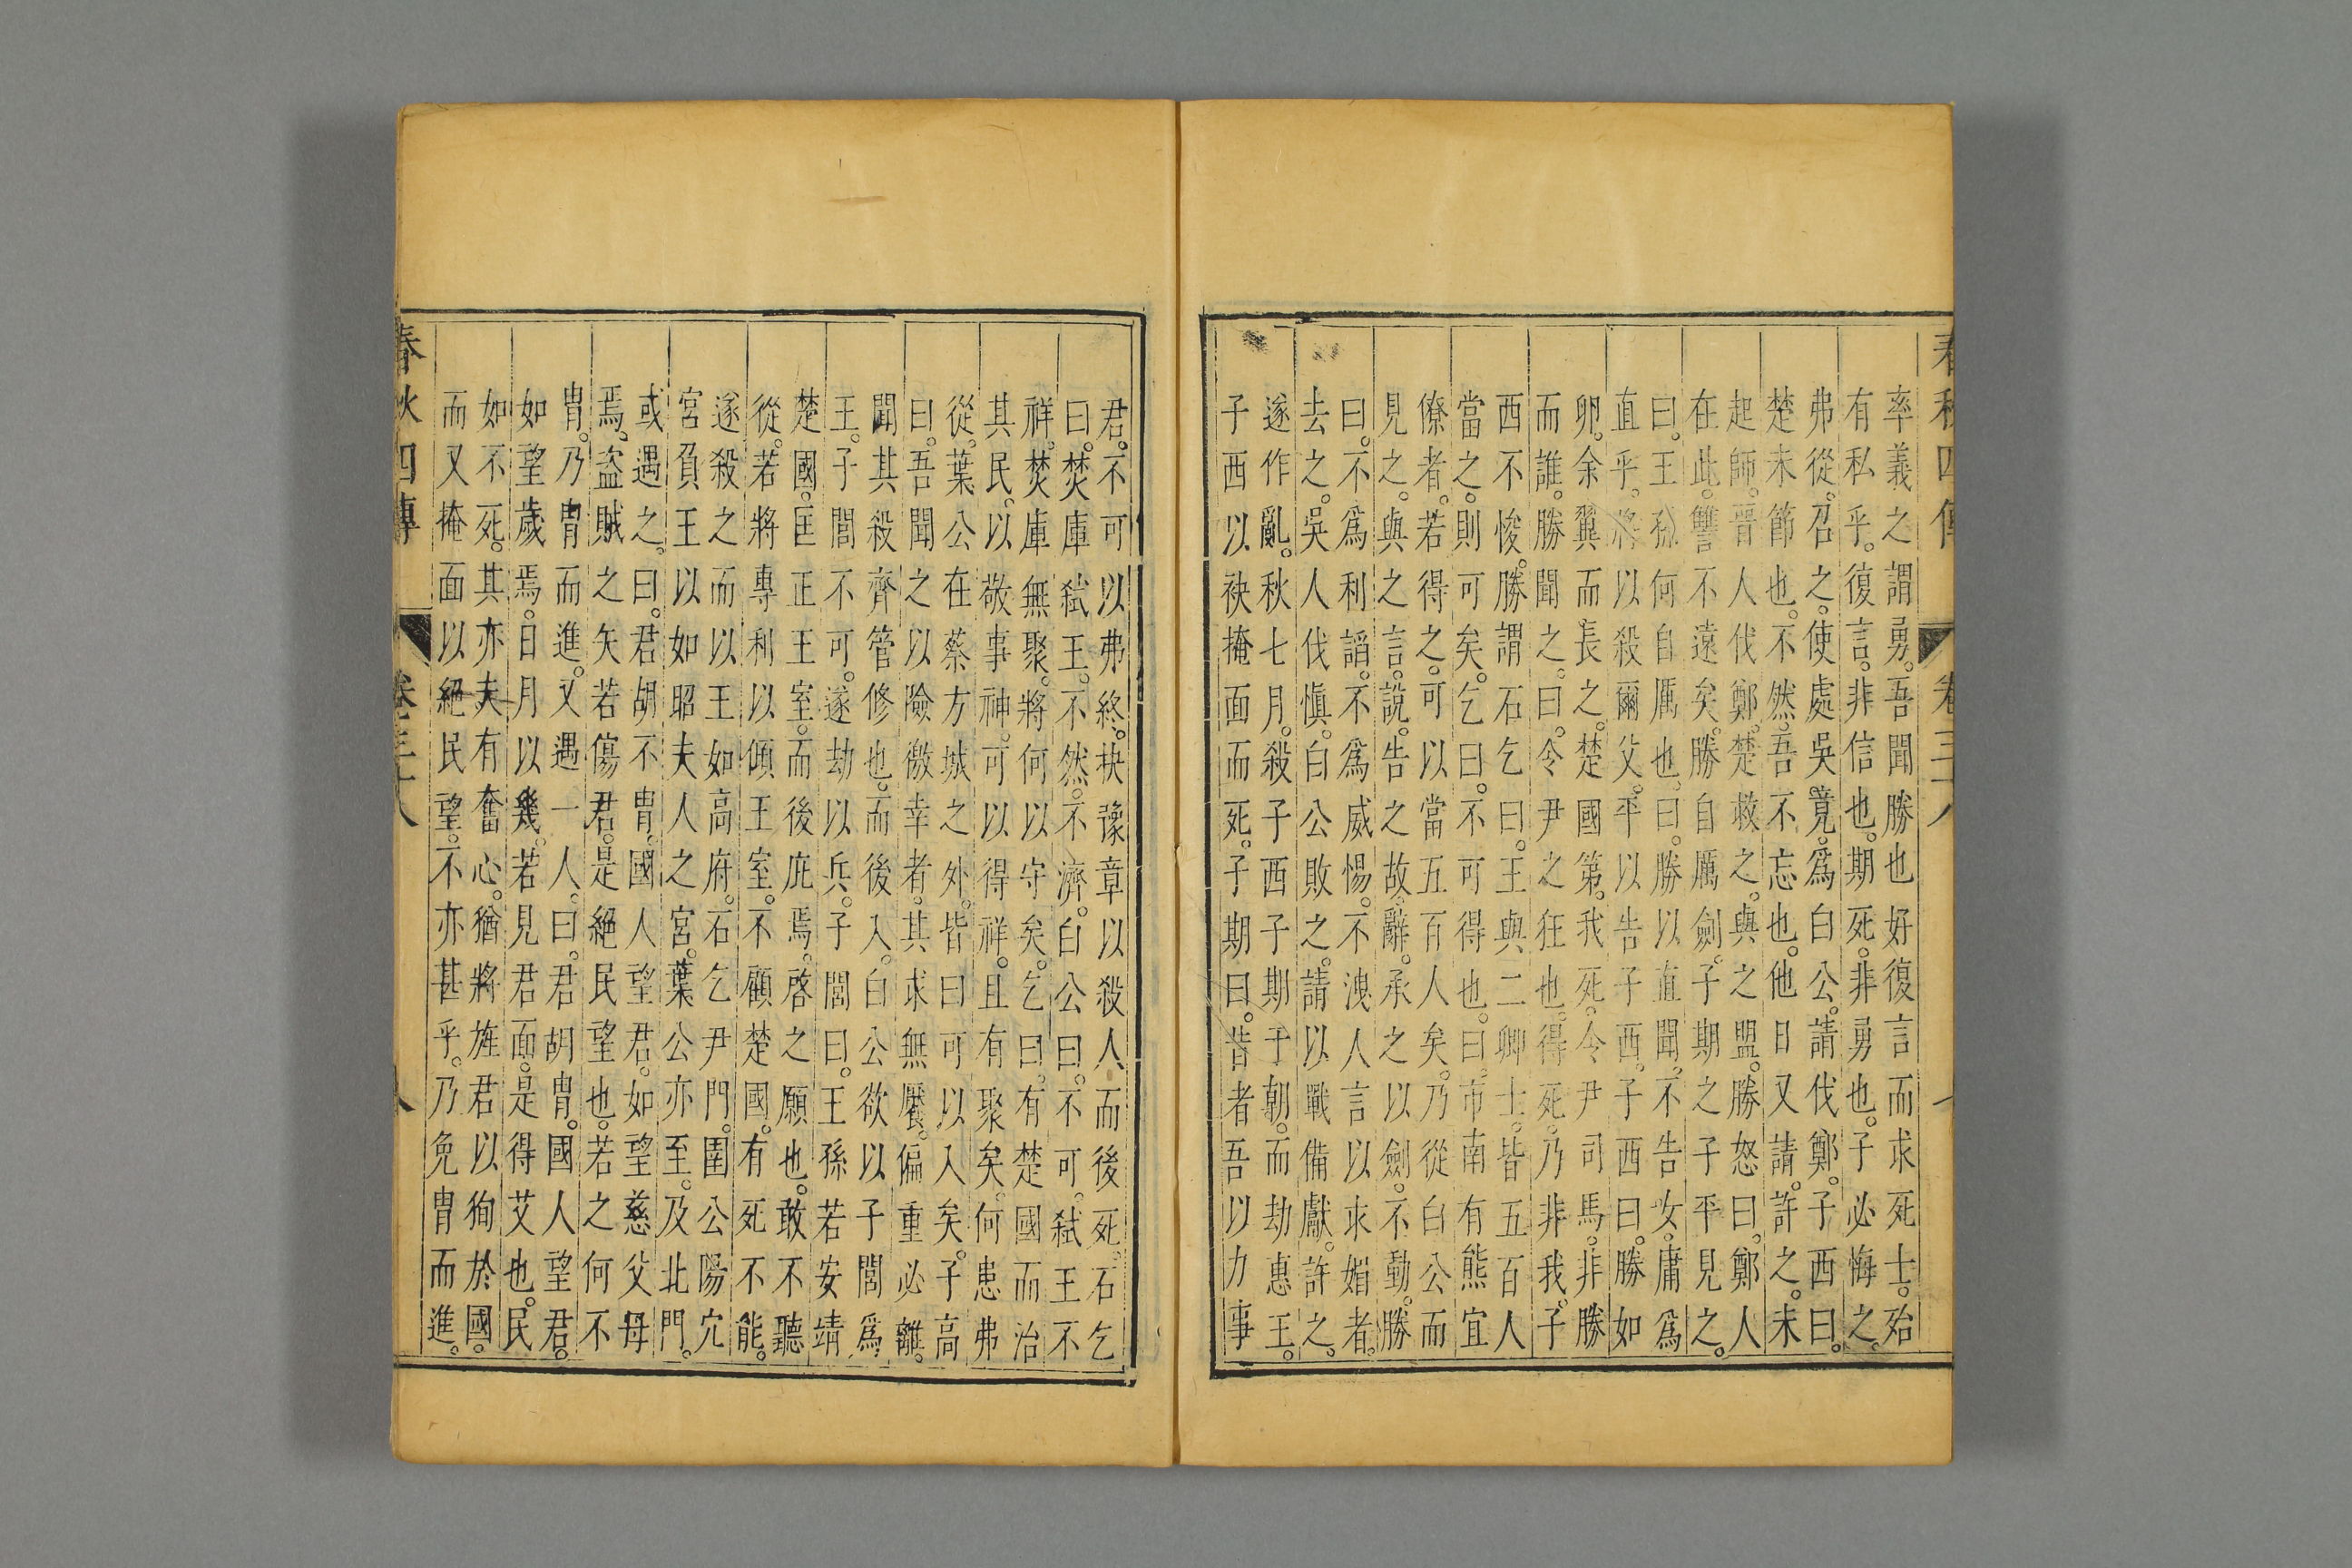 春秋四傳 卷三十八
率義之謂勇。吾聞勝也好復言而求死士。殆
有私乎。復言。非信也。期死。非勇也。子必悔之。
弗從。召之。使處吳竟。爲白公。請伐鄭。子西曰。
楚未節也。不然。吾不忘也。他日又請。許之。未
起師。晉人伐鄭。楚救之。與之盟。勝怒曰。鄭人
在此。讐不遠矣。勝自厲劍。子期之子平見之。
曰。王孫何自厲也。曰。勝以直聞。不告女。庸爲
直乎。將以殺爾父。平以告子西。子西曰。勝如
卵。余翼而長之。楚國第。我死。令尹司馬。非勝
而誰。勝聞之。曰。令尹之狂也。得死。乃非我。子
西不悛。勝謂石乞曰。王與二卿士。皆五百人
當之。則可矣。乞曰。不可得也。曰。市南有熊宜
僚者。若得之。可以當五百人矣。乃從白公而
見之。與之言。說。告之故。辭。承之以劍。不動。勝
曰。不爲利謟。不爲威惕。不洩人言以求媚者。
去之。吳人伐愼。白公敗之。請以戰備獻。許之。
遂作亂。秋七月。殺子西子期于朝。而劫惠王。
子西以袂掩面而死。子期曰。昔者吾以力事
君。不可以弗終。抉豫章以殺人而後死。石乞
曰。焚庫弑王。不然。不濟。白公曰。不可。弑王不
祥。焚庫無聚。將何以守矣。乞曰。有楚國而治
其民。以敬事神。可以得祥。且有聚矣。何患弗
從。葉公在蔡。方城之外。皆曰可以入矣。子高
曰。吾聞之以險徼幸者。其求無饜。偏重必離。
聞其殺齊管修也。而後入。白公欲以子閭爲
王。子閭不可。遂劫以兵。子閭曰。王孫若安靖
楚國。匡正王室。而後庇焉。啓之願也。敢不聽
從。若將專利以傾王室。不顧楚國。有死不能。
遂殺之而以王如高府。石乞尹門。圉公陽穴
宮負王以如昭夫人之宮。葉公亦至。及北門。
或遇之。曰。君胡不冑。國人望君。如望慈父母
焉。盜賊之矢若傷君。是絕民望也。若之何不
冑。乃冑而進。又遇一人。曰。君胡冑。國人望君。
如望歲焉。日月以幾。若見君面。是得艾也。民
如不死。其亦夫有奮心。猶將旌君以徇於國。
而又掩面以絕民望。不亦甚乎。乃免冑而進。
春秋四傳 卷三十八 八